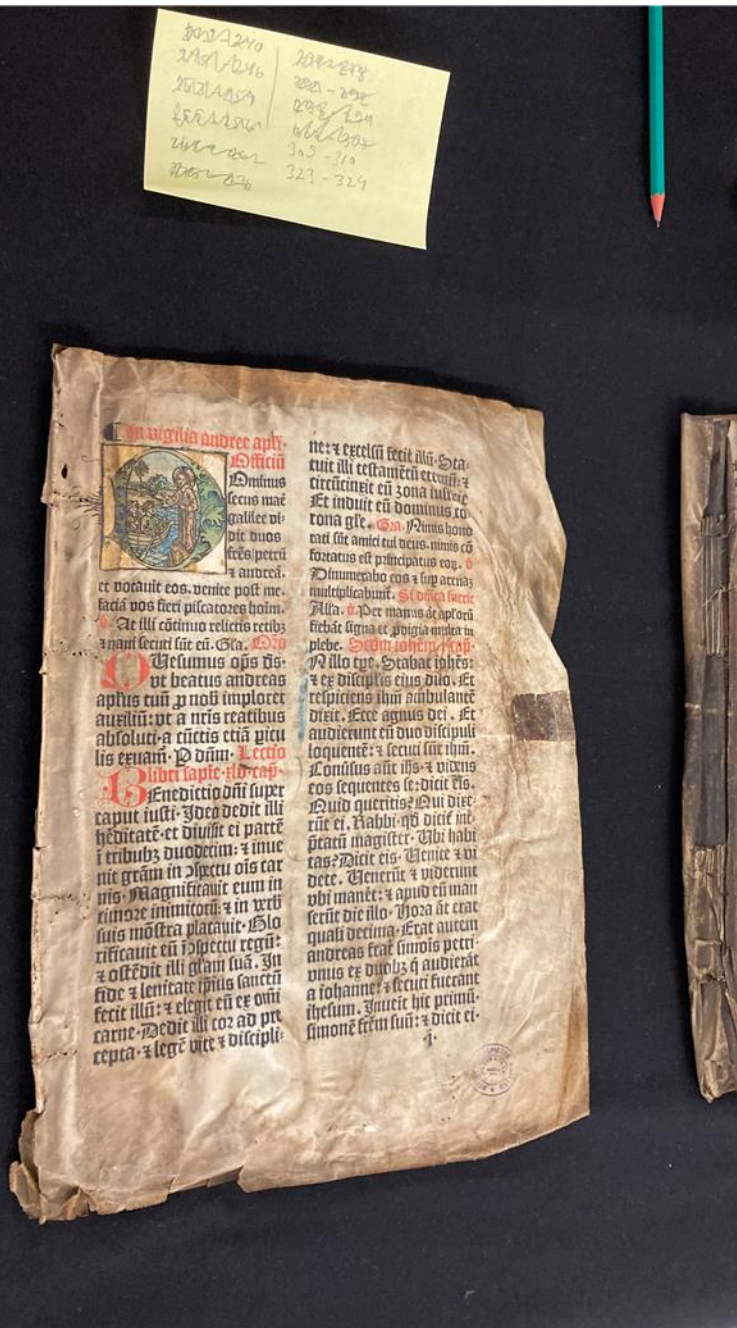 309-310
323-324
In vigilia andree apli·
Officiū
Ominus
secus mare
galilee vi-
dit duos
frēs/petrū
⁊ andreā.
et vocauit eos. venite post me.
faciā vos fieri piscatores hoīm.
At illi cōtinuo relictis retibꝫ
⁊ naui secuti sūt eū. Gla. Oro
QUesumus ops ds·
vt beatus andreas
aplus tuū ꝓ nob imploret
auxiliū: vt a nr̄is reatibus
absoluti· a cūctis etiā ꝑicu
lis exuam̄· P dūm· Lectio
libri sapīe· xlv· cap·
BEnedictio dn̄i super
caput iusti· Ideo dedit illi
hēditatē· et diuisit ei partē
ī tribubꝫ duodecim: ⁊ inue
nit grām in ꝯspectu oīs car
nis· Magnificauit eum in
timore inimicorū: ⁊ in verb
suis mōstra placauit· Glo
rificauit eū ī ꝯspectu regū:
⁊ ostēdit illi gl̄am suā. In
fide ⁊ lenitate ip̄ius sanctū
fecit illū: ⁊ elegit eū ex om̄i
carne· Dedit illi cor ad pre
cepta· ⁊ legē vite ⁊ discipli-
ne: ⁊ excelsū fecit illū· Sta-
tuit illi testamētū eternū: ⁊
circūcinxit eū zona iusticie
Et induit eū dominus co
rona gl̄e. Gra. Nimis hono
rati sūt amici tui deus. nimis cō
fortatus est principatus eoꝝ. v̄
Dinumerabo eos ⁊ sup arenaꝫ
multiplicabunt̄. Si dn̄ica fuerit
Alla. v̄. Per manus āt apl̄orū
fiebāt signa et ꝓdigia multa in
plebe. Scd̄m iohēm. j. cap̄.
IN illo tpe. Stabat iohēs:
⁊ ex discipl̄is eius duo. Et
respiciens ih̄m ambulantē
dixit. Ecce agnus dei. Et
audierunt eū duo discipuli
loquentē: ⁊ secuti sūt ih̄m.
Conūsus aūt ih̄s· ⁊ videns
eos sequentes se: dicit eīs.
Quid queritis? Qui dixe-
rūt ei. Rabbi· qd̄ dicit̄ int̄
p̄tatū magister· Ubi habi
tas? Dicit eis· Uenite ⁊ vi
dete. Uenerūt ⁊ viderunt
vbi manēt: ⁊ apud eū man
serūt die illo· Hora āt erat
quasi decima· Erat autem
andreas frat̄ simōis petri·
vnus ex duobꝫ q̄ audierāt
a iohanne: ⁊ secuti fuerant
ihesum. Inueit hic primū·
simonē frēm suū: ⁊ dicit ei·
.j.